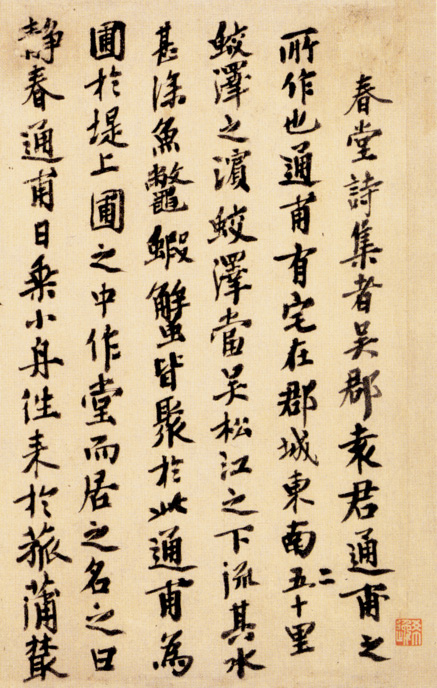 春堂詩集者吳郡袁君通甫之
所作也通甫有宅在郡城東南五二十里
蛟澤之濱蛟澤當吳松江之下流其水
甚深魚鼈蝦蟹皆聚於此通甫為
圃於堤上圃之中作堂而居之名之曰
靜春通甫日乘小舟往來於菰蒲叢